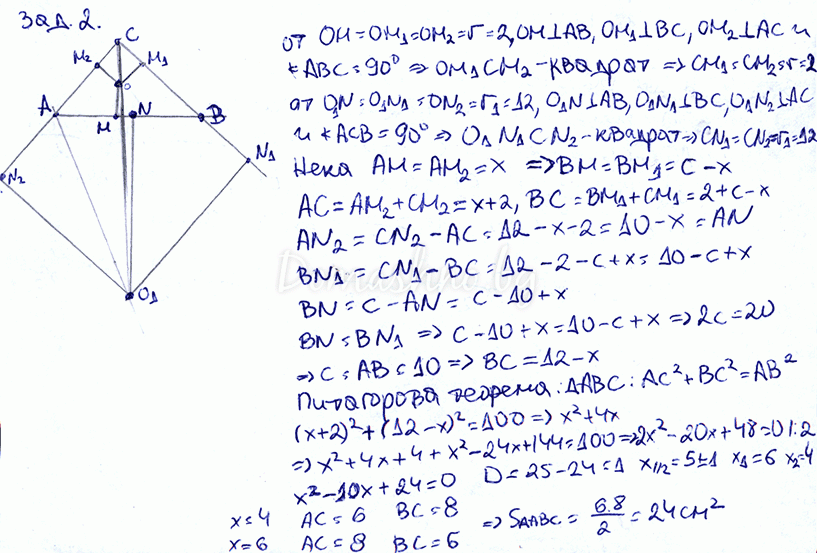 Зад. 2.
C
M₂
M₁
O
A
M
N
B
N₂
N₁
O₁
от OM=OM₁=OM₂=r=2, OM⊥AB, OM₁⊥BC, OM₂⊥AC и
∢ABC=90° ⇒ OM₁CM₂-квадрат ⇒ CM₁=CM₂=r=2
от O₁N=O₁N₁=ON₂=r₁=12, O₁N⊥AB, O₁N₁⊥BC, O₁N₂⊥AC
и ∢ACB=90° ⇒ O₁N₁CN₂-квадрат ⇒ CN₁=CN₂=r₁=12
Нека AM=AM₂=x ⇒ BM=BM₁=c-x
AC=AM₂+CM₂=x+2, BC=BM₁+CM₁=2+c-x
AN₂=CN₂-AC=12-x-2=10-x=AN
BN₁=CN₁-BC=12-2-c+x=10-c+x
Domashni.bg
BN=c-AN=c-10+x
BN=BN₁ ⇒ c-10+x=10-c+x ⇒ 2c=20
⇒ c=AB=10 ⇒ BC=12-x
Питагорова теорема: ΔABC: AC²+BC²=AB²
(x+2)²+(12-x)²=100 ⇒ x²+4x
⇒ x²+4x+4+x²-24x+144=100 ⇒ 2x²-20x+48=0 |:2
x²-10x+24=0 D=25-24=1 x₁/₂=5±1 x₁=6 x₂=4
x=4 AC=6 BC=8 ⇒ SΔABC=6.8/2=24cm²
x=6 AC=8 BC=6